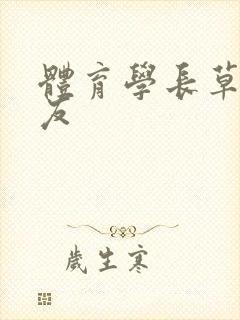 體育學長草
友
歲生寒